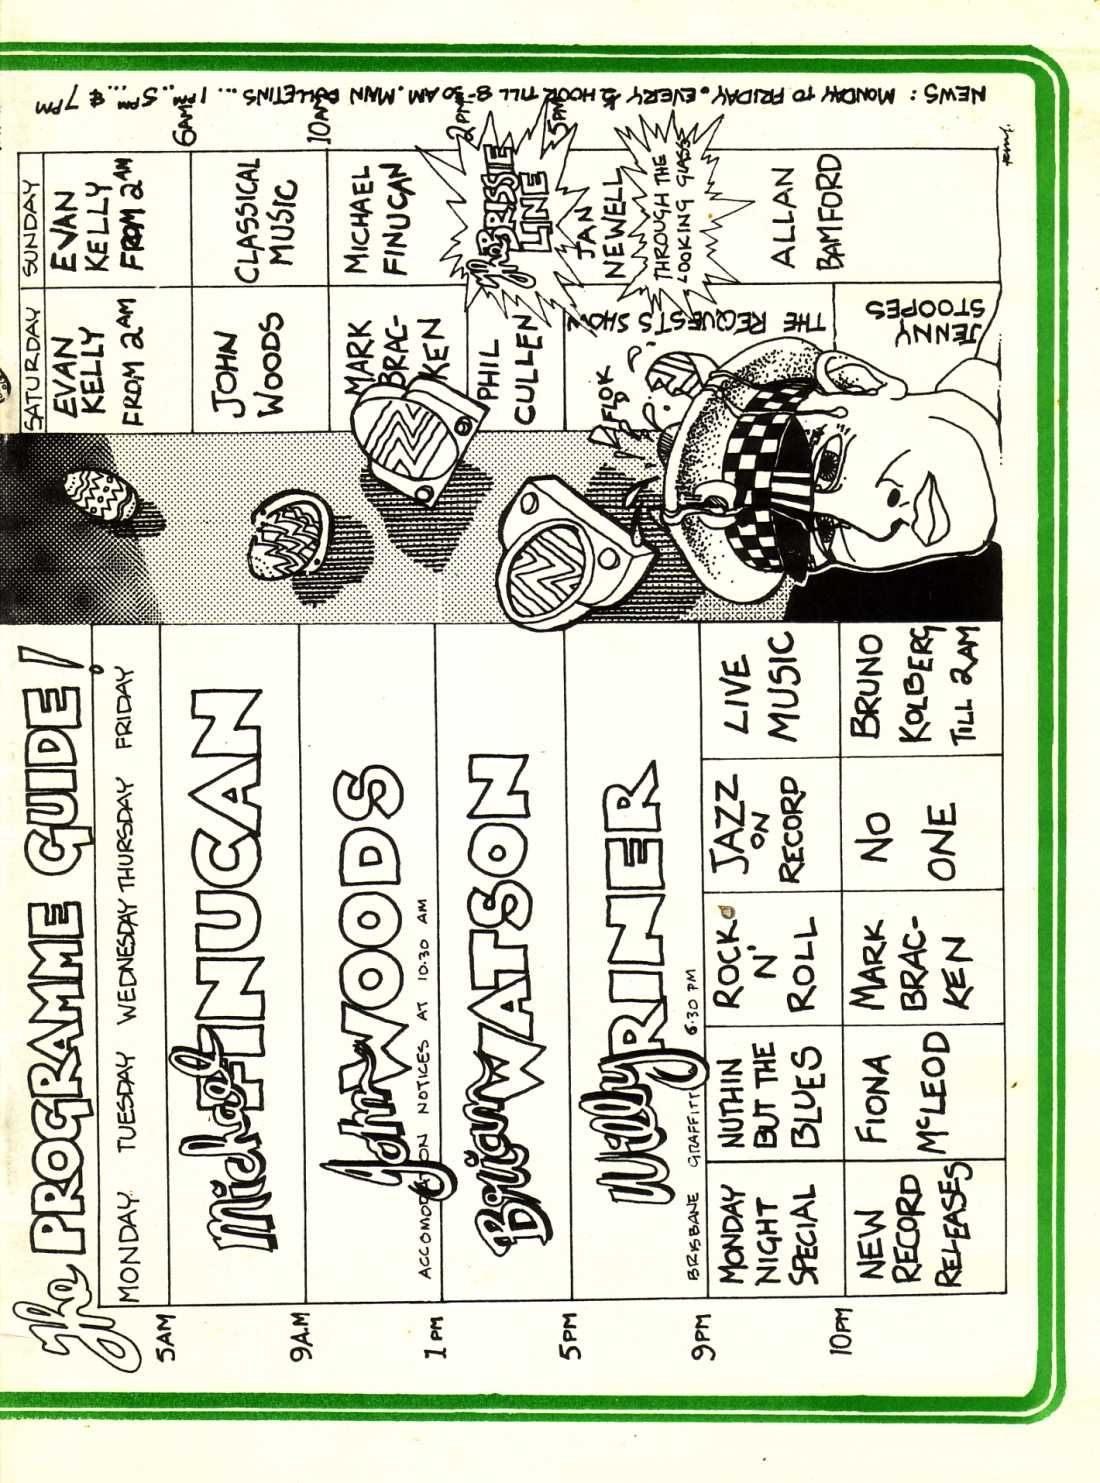 The PROGRAMME GUIDE!
MONDAY TUESDAY WEDNESDAY THURSDAY FRIDAY
5AM
Michael FINUCAN
9A.M
John WOODS
ACCOMODATION NOTICES AT 10.30 AM
1PM
Brian WATSON
5PM
Willy RINER
BRISBANE GRAFFITI 6.30 PM
9PM
MONDAY
NIGHT
SPECIAL
NUTHIN
BUT THE
BLUES
ROCK
N'
ROLL
JAZZ
ON
RECORD
LIVE
MUSIC
10PM
NEW
RECORD
RELEASES
FIONA
McLEOD
MARK
BRAC-
KEN
NO
ONE
BRUNO
KOLBERG
TILL 2AM
SATURDAY SUNDAY
EVAN
KELLY
FROM 2AM
EVAN
KELLY
FROM 2AM
6AM
JOHN
WOODS
CLASSICAL
MUSIC
10AM
MARK
BRAC-
KEN
MICHAEL
FINUCAN
2PM
PHIL
CULLEN
The BRISSIE
LINE
5PM
FLOK
THE REQUESTS SHOW
JAN
NEWELL
THROUGH THE
LOOKING GLASS
JENNY
STOOPES
ALLAN
BAMFORD
NEWS: MONDAY TO FRIDAY. EVERY ½ HOUR TILL 8-30AM. MAIN BULLETINS ... 1PM ... 5PM ... & 7PM